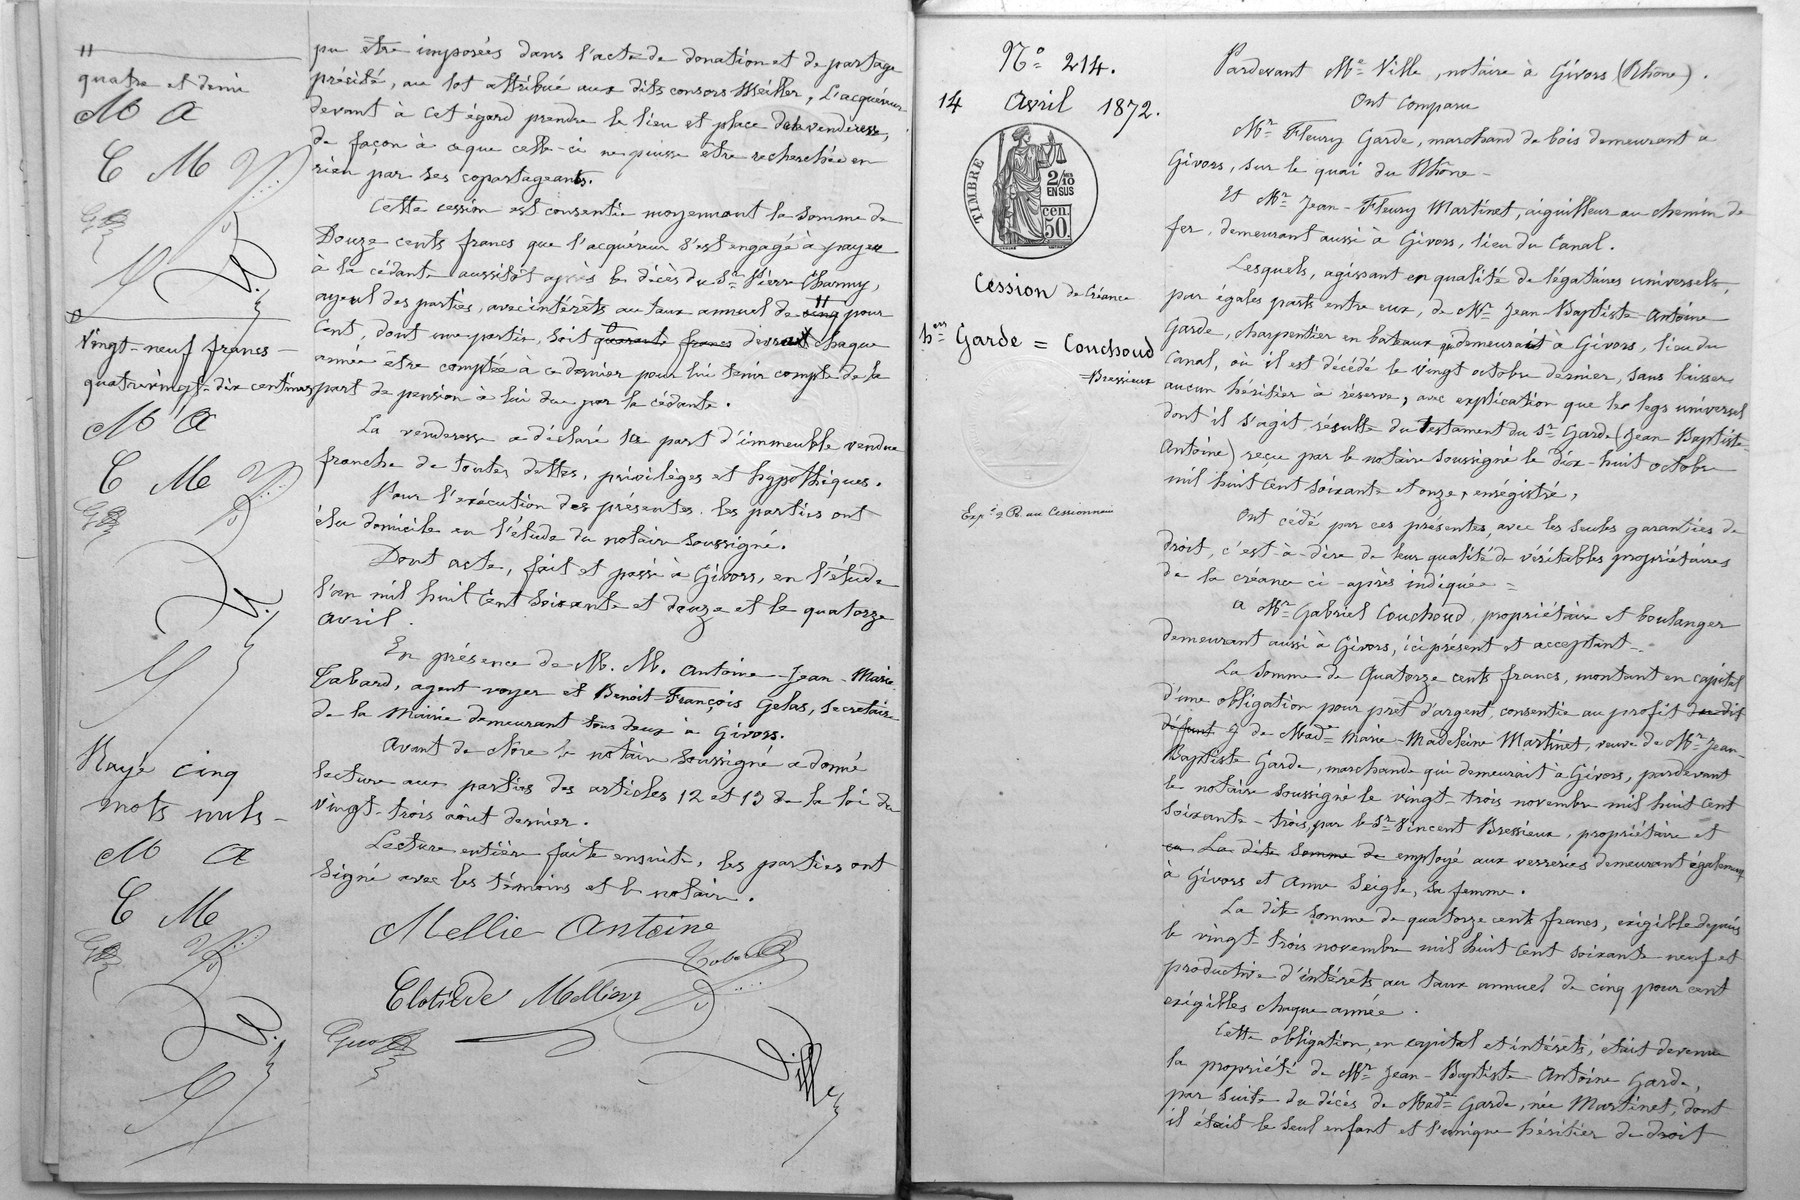 "
quatre et demi
M A
C M
Vingt-neuf francs
quatrevingt-dix centimes
M A
C M
Rayé cinq
mots nuls -
M A
C M
pu être imposées dans l'acte de donation et de partage
précité, au lot attribué aux dits consors Meiller, L'acquéreur
devant à cet égard prendre le lieu et place de la venderesse,
de façon à ce que celle-ci ne puisse être recherchée en
rien par ses copartageants.
Cette cession est consentie moyennant la somme de
Douze cents francs que l'acquéreur s'est engagé à payer
à la cédante aussitôt après le décès du Sr Pierre Charmy,
ayeul des parties, avec intérêts au taux annuel de cinq " pour
Cent, dont une partie, soit quarante francs devra chaque
année être comptée à ce dernier pour lui tenir compte de la
part de pension à lui due par la cédante.
La venderesse a déclaré la part d'immeuble vendue
franche de toutes dettes, privilèges et hypothèques.
Pour l'exécution des présentes, les parties ont
élu domicile en l'étude du notaire soussigné.
Dont acte, fait et passé à Givors, en l'étude
l'an mil huit cent soixante et douze et le quatorze
avril.
En présence de M. M. Antoine-Jean-Marie
Tabard, agent voyer et Benoit-François Gelas, secrétaire
de la Mairie demeurant tous deux à Givors.
Avant de clore le notaire soussigné a donné
lecture aux parties des articles 12 et 13 de la loi du
vingt-trois août dernier.
Lecture entière faite ensuite, les parties ont
signé avec les témoins et le notaire.
Mellie Antoine
Tabard
Clotilde Mellier
Ville
No 214.
14 Avril 1872.
TIMBRE
2/10
EN SUS
cen.
50.
Cession de Créance
Garde = Couchoud
=Bressieux
Exp. au Cessionnaire
Pardevant Me Ville, notaire à Givors (Rhône).
Ont Comparu
Mr Fleury Garde, marchand de bois demeurant à
Givors, sur le quai du Rhône -
Et Mr Jean-Fleury Martinet, aiguilleur au chemin de
fer, demeurant aussi à Givors, lieu du Canal.
Lesquels, agissant en qualité de légataires universels,
par égales parts entre eux, de Mr Jean Baptiste Antoine
Garde, charpentier en bateaux qui demeurait à Givors, lieu du
Canal, où il est décédé le vingt octobre dernier, sans laisser
aucun héritier à réserve, avec explication que le legs universel
dont il s'agit, résulte du testament du Sr Garde (Jean Baptiste-
Antoine) reçu par le notaire soussigné le dix-huit octobre
mil huit cent soixante et onze, enrégistré,
Ont cédé par ces présentes, avec les seules garanties de
droit, c'est-à-dire de leur qualité de véritables propriétaires
de la créance ci-après indiquée =
a Mr Gabriel Couchoud, propriétaire et boulanger
demeurant aussi à Givors, ici présent et acceptant -
La somme de Quatorze cents francs, montant en capital
d'une obligation pour prêt d'argent, consentie au profit du dit
défunt de Made Marie-Madeleine Martinet, veuve de Mr Jean
Baptiste Garde, marchande qui demeurait à Givors, pardevant
le notaire soussigné le vingt-trois novembre mil huit cent
soixante-trois, par le Sr Vincent Bressieux, propriétaire et
ca La dite somme de employé aux verreries demeurant également
à Givors et Anne Seigle, sa femme.
La dite somme de quatorze cents francs, exigible depuis
le vingt-trois novembre mil huit cent soixante neuf et
productive d'intérêts au taux annuel de cinq pour cent
exigibles chaque année.
Cette obligation, en capital et intérêts, était devenue
la propriété de Mr Jean-Baptiste-Antoine Garde,
par suite du décès de Made Garde, née Martinet, dont
il était le seul enfant et l'unique héritier de droit